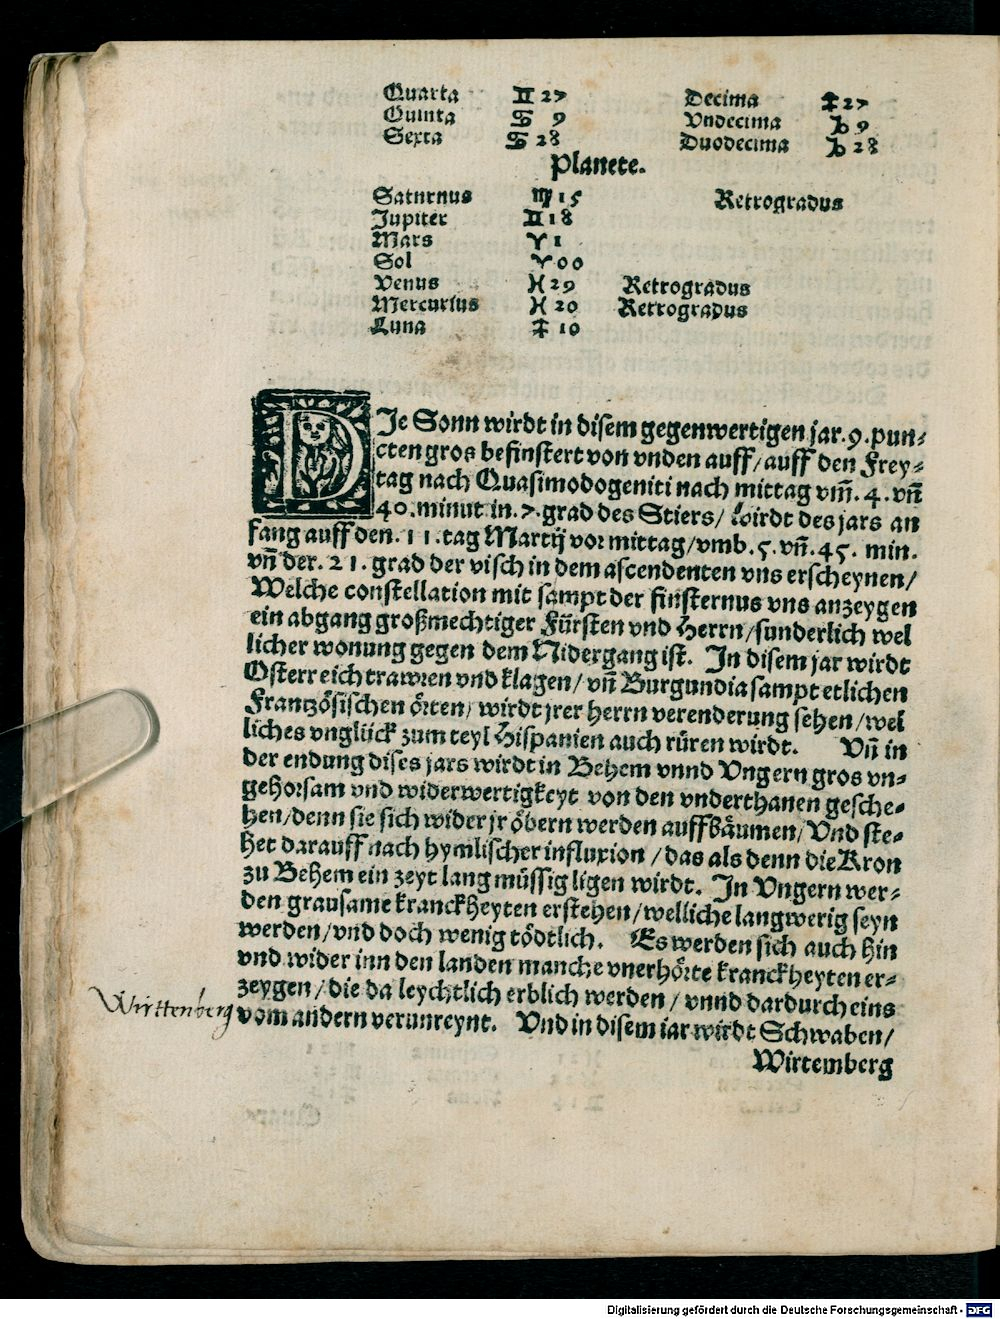 Quarta ♊ 27 Decima ♐ 27
Quinta ♋ 9 Vndecima ♑ 9
Sexta ♋ 28 Duodecima ♑ 28
Planete.
Saturnus ♍ 15 Retrogradus
Jupiter ♊ 18
Mars ♈ 1
Sol ♈ 00
Venus ♓ 29 Retrogradus
Mercurius ♓ 20 Retrogradus
Luna ♐ 10
DJe Sonn wirdt in disem gegenwertigen jar .9. pun⸗
cten gros befinstert von vnden auff/ auff den Frey⸗
tag nach Quasimodogeniti nach mittag vm̄. 4. vn̄
40. minut in .7. grad des Stiers/ wirdt des jars an
fang auff den .11. tag Martij vor mittag/ vmb .5. vn̄ .45. min.
vn̄ der .21. grad der visch in dem ascendenten vns erscheynen/
Welche constellation mit sampt der finsternus vns anzeygen
ein abgang großmechtiger Fürsten vnd Herrn/ sunderlich wel
licher wonung gegen dem Nidergang ist. Jn disem jar wirdt
Osterreich trawren vnd klagen/ vn̄ Burgundia sampt etlichen
Französischen örten/ wirdt jrer herrn verenderung sehen/ wel
liches vnglück zum teyl Hispanien auch rüren wirdt. Vn̄ in
der endung dises jars wirdt in Behem vnnd Vngern gros vn⸗
gehorsam vnd widerwertigkeyt von den vnderthanen gesche⸗
hen/ denn sie sich wider jr öbern werden auffbäumen/ Vnd ste⸗
het darauff nach hymlischer influxion/ das als denn die Kron
zu Behem ein zeyt lang müssig ligen wirdt. Jn Vngern wer⸗
den grausame kranckheyten erstehen/ welliche langwerig seyn
werden/ vnd doch wenig tödtlich. Es werden sich auch hin
vnd wider inn den landen manche vnerhörte kranckheyten er⸗
zeygen/ die da leychtlich erblich werden/ vnnd dardurch eins
Wirttenberg
vom andern verunreynt. Vnd in disem iar wirdt Schwaben/
Wirtemberg
Digitalisierung gefördert durch die Deutsche Forschungsgemeinschaft - DFG